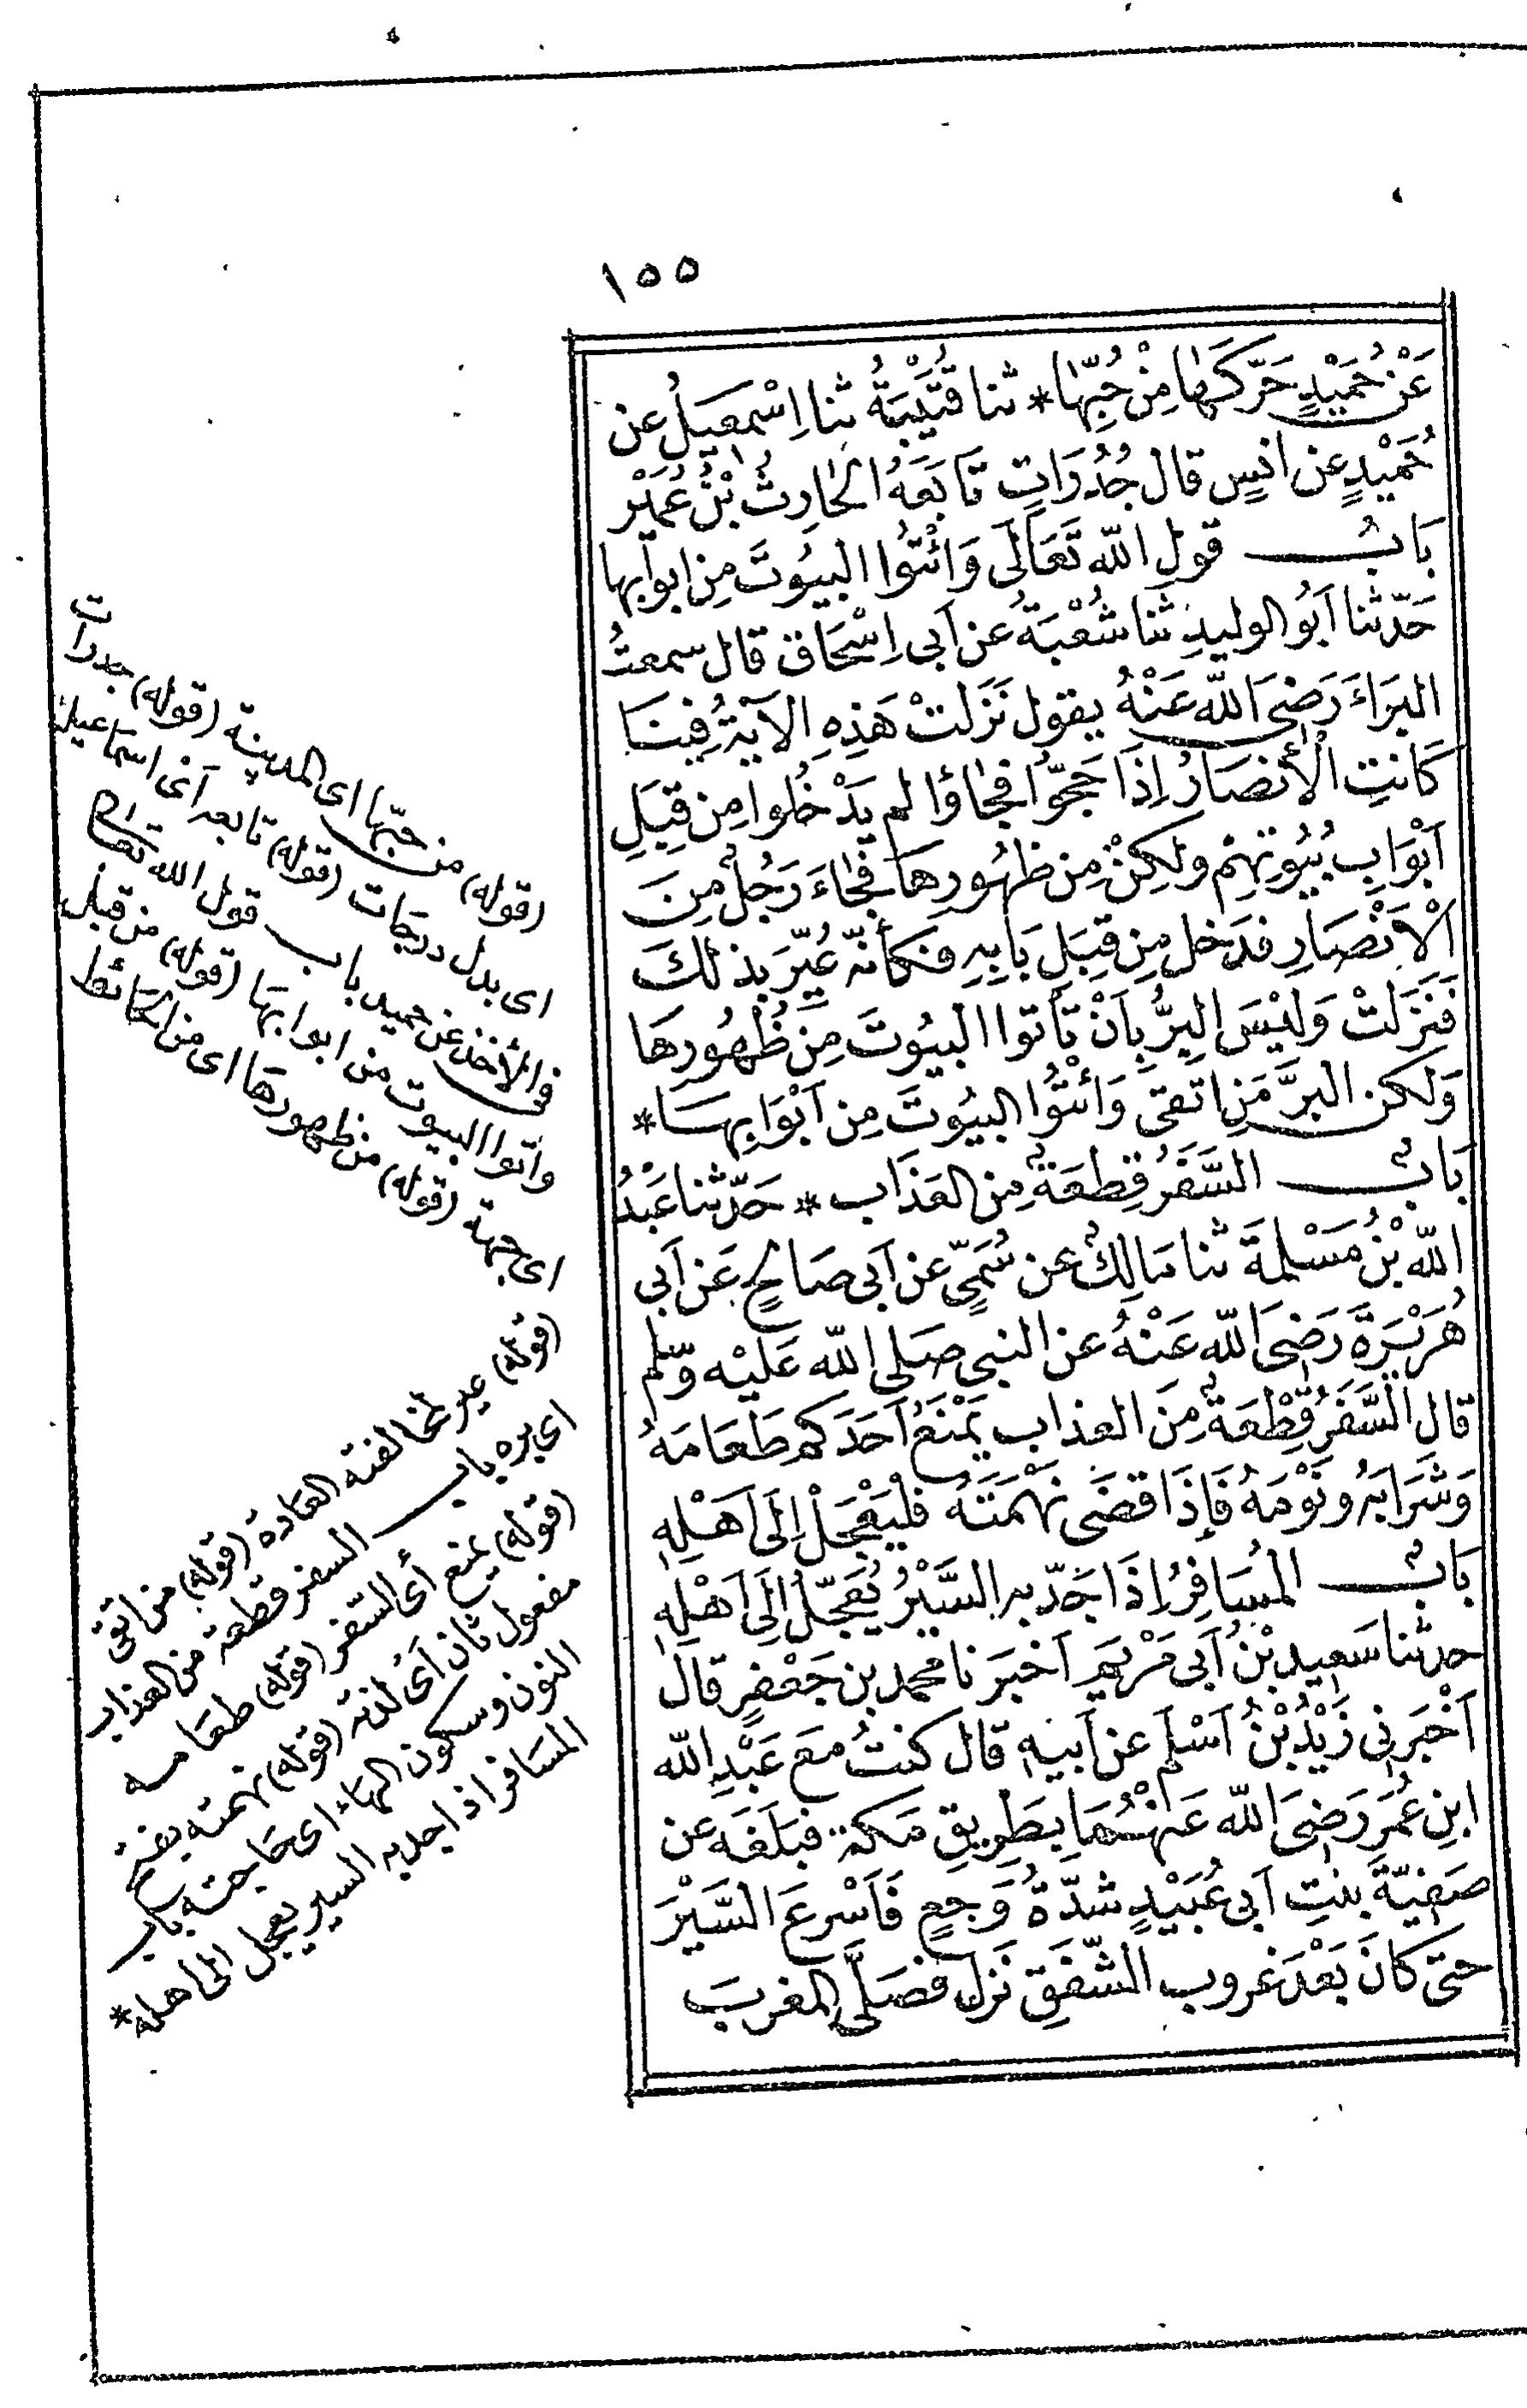 ١٥٥
عَنْ حُمَيْدٍ حَرَّكَهَا مِنْ حُبِّهَا * ثنا قُتَيْبَةُ ثنا اِسْمعيلُ عن
حُمَيْدٍ عن انسٍ قال جُدُرَاتِ تَابَعَهُ الحَارِثُ بْنُ عُمَيْرٍ
بَابُ قولِ اللّه تَعَالَى وَائْتُوا البيُوتَ مِن ابوابها
حَدّثنا اَبُو الوليدِ ثنا شُعْبَةُ عن اَبى اِسْحَاق قال سمعتُ
البَرَاءَ رَضِىَ اللّه عَنْهُ يقول نَزَلتْ هَذِهِ الآيَةُ فِينَا
كَانَتِ الْأَنصَارُ اِذَا حَجّوُا فجَاؤا لم يَدْخُلوا مِن قِبَلِ
اَبْوَابِ بُيُوتِهِمْ ولكِنْ مِن ظهُورِهَا فجَاءَ رَجُلٌ مِنَ
الْاَنْصَارِ فدَخل مِن قِبَلِ بَابِهِ فكأنّه عُيِّرَ بذلكَ
فَنَزَلَتْ وَليْسَ البِرُّ بِاَنْ تأتوا البيُوتَ مِنْ ظُهُورِهَا
وَلكن البرَّ مَنِ اتقى وَائْتُوا البيُوتَ مِن اَبْوَابِهَا *
بَابٌ السَّفَرُ قِطعَةٌ مِن العَذَاب * حَدّثنا عَبْدُ
اللّه بْنُ مَسْلمَةَ ثنا مَالِكٌ عن سُمَىٍّ عن اَبى صَالحٍ عَن اَبى
هُرَيْرَةَ رَضِىَ اللّه عَنْهُ عن النبى صَلى اللّه عَليْه وَسّلم
قال السَّفَرُ قِطْعَةٌ مِنَ العذاب يَمْنَعُ اَحَدَكم طَعَامَهُ
وَشَرَابَهُ ونَوْمَهُ فَإِذَا قضَى نَهْمَتَهُ فلْيَعْجَلْ اِلَى اَهْلِهِ
بَابٌ المُسَافِرُ اِذَا جَدّ به السَّيْرُ يُعَجّلُ اِلَى اَهْلِهِ
حدثنا سَعِيد بْنُ اَبى مَرْيَم اَخبَرَنا محمد بن جَعْفرٍ قال
اَخْبَرَنى زَيْدُ بْنُ اَسْلم عن اَبيهِ قال كنتُ مَع عَبْدِ اللّه
ابنِ عُمَرَ رَضِىَ اللّه عَنْهُمَا بِطَرِيقِ مَكة فبَلَغَه عن
صَفِيّةَ بِنتِ اَبى عُبَيْدٍ شدّةُ وَجعٍ فَاَسْرعَ السَّيْرَ
حتى كَانَ بَعْدَ غروب الشّفَقِ نَزل فصَلَّى المغربَ
(قوله) من حبّها اى المدينة (قوله) جدرات
اى بدل درجات (قوله) تابعه أى اسماعيل
فى الأخذ عن حميد باب قول الله تعالى
وأتوا البيوت من ابوابها (قوله) من قبل
اى جهة (قوله) من ظهورها اى من الحائط
(قوله) عير لمخالفته العادة (قوله) من اتقى
اى بره باب السفر قطعة من العذاب
(قوله) يمنع أى السّفر (قوله) طعامه
مفعول ثان أى لذته (قوله) نهمته بفتح
النون وسكون الهاء اى حاجته باب
المسافر اذا جد به السير يعجل الى اهله *